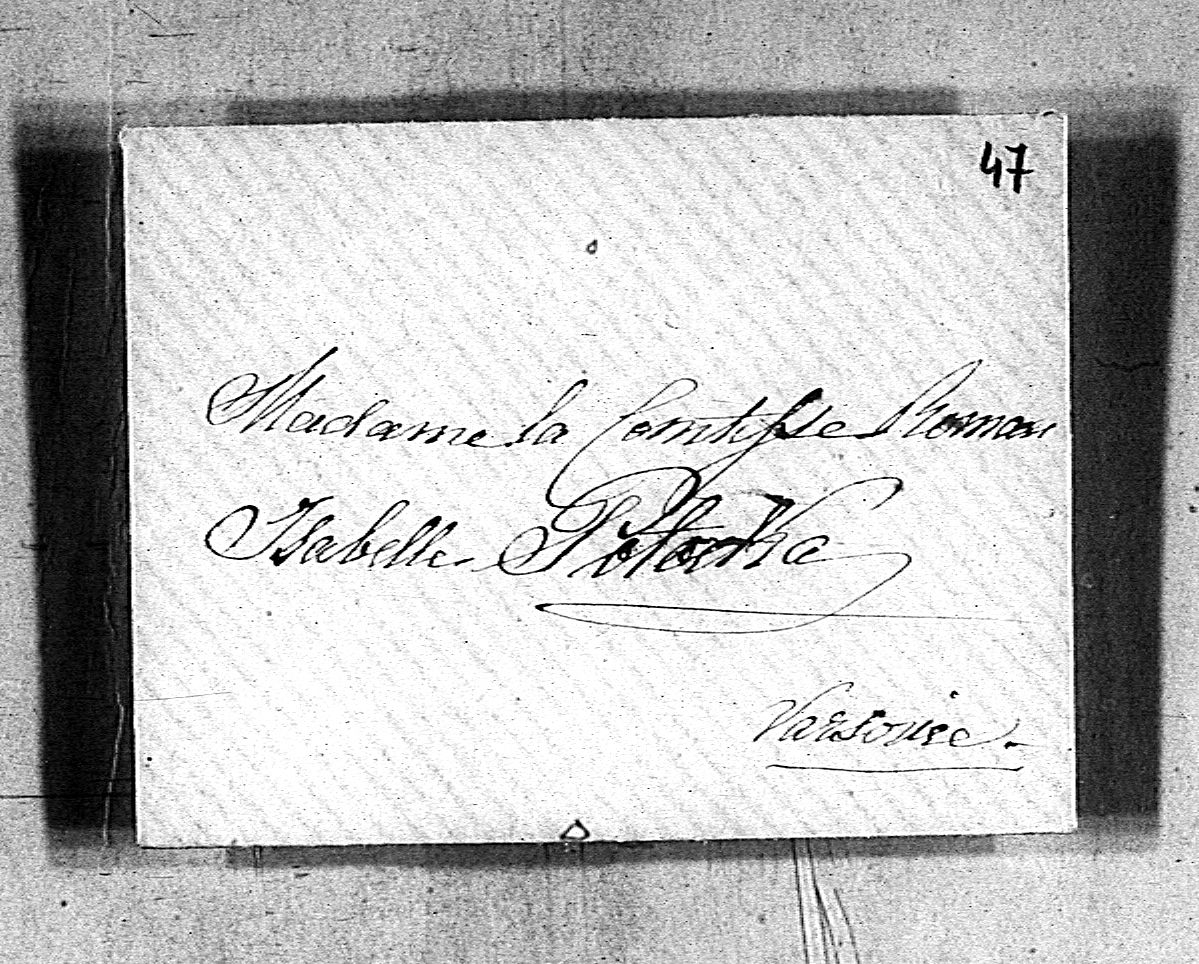 47
Madame la Comtesse Roman
Isabelle Potocka
Varsovie.